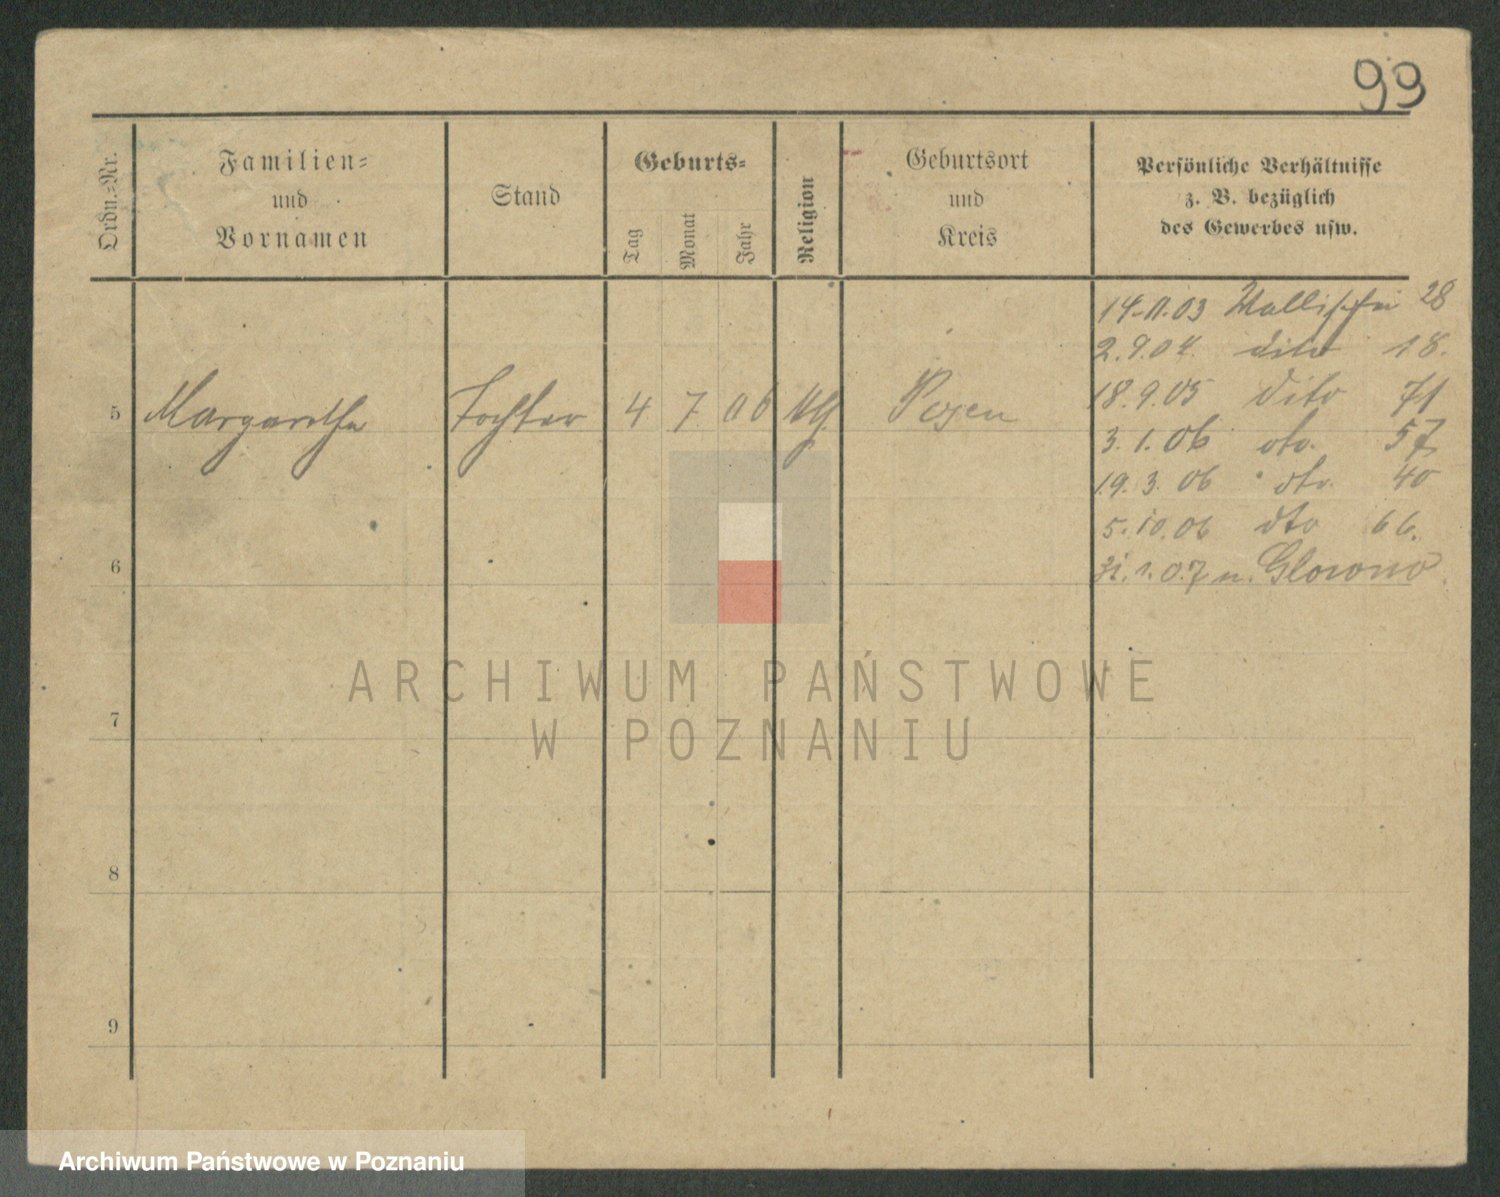 99
Ordn.-Nr.
Familien-
und
Vornamen
Stand
Geburts-
Tag
Monat
Jahr
Religion
Geburtsort
und
Kreis
Persönliche Verhältnisse
z. B. bezüglich
des Gewerbes usw.
14.11.03 Wallischei 28
2.9.04. dito 18.
18.9.05 dito 71
3.1.06 dto. 57
19.3.06 dto. 40
5.10.06 dto 66.
31.1.07 n. Glowno
5 Margarethe Tochter 4 7 06 Posen
6
7
8
9
ARCHIWUM PAŃSTWOWE
W POZNANIU
Archiwum Państwowe w Poznaniu